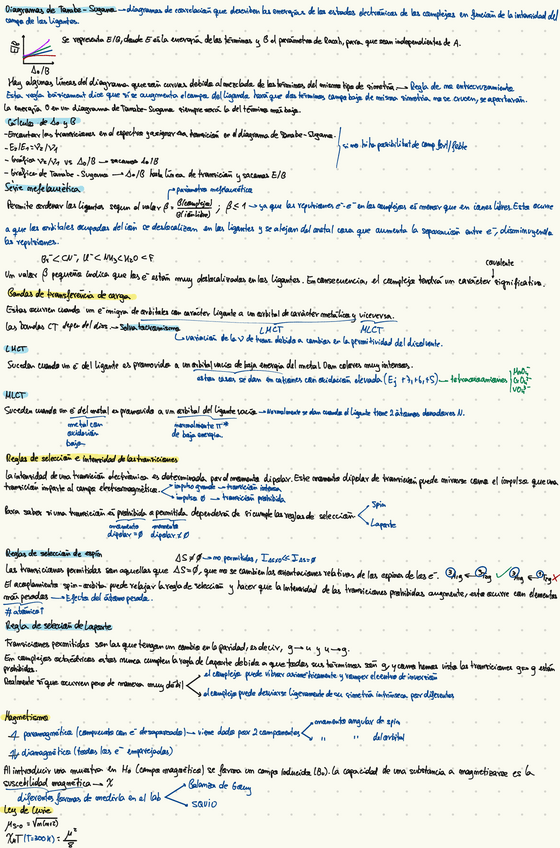 Diagramas de Tanabe-Sugano → diagramas de correlación que describen las energías de los estados electrónicos de los complejos en función de la intensidad del
campo de los ligantes.
E/B
Se representa E/B, donde E es la energía de los términos y B el parámetro de Racah, para que sean independientes de A.
Δo/B
Hay algunas líneas del diagrama que serán curvas debido al mezclado de los términos del mismo tipo de simetría → Regla de no entrecruzamiento
Esta regla básicamente dice que si se augmenta el campo del ligando hará que dos términos campo bajo de misma simetría no se crucen, se apartarán.
La energía 0 en un diagrama de Tanabe-Sugano siempre será la del término más bajo.
Cálculo de Δo y B
- Encontrar las transiciones en el espectro y asignar esa transición en el diagrama de Tanabe-Sugano.
- E2/E1 = V2/V1
- Gráfica V2/V1 vs Δo/B → sacamos Δo/B
- Gráfica de Tanabe-Sugano → Δo/B hasta línea de transición y sacamos E/B
Serie nefelauxética
parámetro nefelauxético
Permite ordenar los ligantes según el valor β = B(complejo)/B(ión libre) ; β ≤ 1 → ya que las repulsiones e⁻-e⁻ en los complejos es menor que en iones libres. Esto ocurre
a que los orbitales ocupados del ión se deslocalizan en los ligantes y se alejan del metal cosa que aumenta la separación entre e⁻, disminuyendo
las repulsiones.
Br⁻ < CN⁻, Cl⁻ < NH3 < H2O < F
covalente
Un valor β pequeña indica que los e⁻ están muy deslocalizados en los ligantes. En consecuencia, el complejo tendrá un carácter significativo.
Bandas de transferencia de carga
Estas ocurren cuando un e⁻ migra de orbitales con carácter ligante a un orbital de carácter metálico y viceversa.
LMCT MLCT
Las bandas CT dependen del disolv. → Solvatocromismo
variación de la ν de trans. debido a cambios en la permitividad del disolvente.
LMCT
Suceden cuando un e⁻ del ligante es promovido a un orbital vacío de baja energía del metal. Dan colores muy intensos.
estos casos se dan en cationes con oxidación elevada (Ej +7, +6, +5) → tetraoxoaniones
MnO4⁻
CrO4²⁻
VO4³⁻
MLCT
Suceden cuando un e⁻ del metal es promovido a un orbital del ligante vacío → Normalmente se dan cuando el ligante tiene 2 átomos donadores N.
metal con
oxidación
baja
normalmente π*
de baja energía.
Reglas de selección e intensidad de las transiciones
La intensidad de una transición electrónica es determinada por el momento dipolar. Este momento dipolar de transición puede mirarse como el impulso que una
transición imparte al campo electromagnético.
impulso grande → transición intensa
impulso 0 → transición prohibida
Para saber si una transición es prohibida o permitida dependerá de si cumple las reglas de selección
Spin
Laporte
momento
dipolar = 0
momento
dipolar ≠ 0
Reglas de selección de espín
ΔS ≠ 0 → no permitidas, I ΔS≠0 << I ΔS=0
Las transiciones permitidas son aquellas que ΔS = 0, que no se cambian las orientaciones relativas de los espines de los e⁻.
El acoplamiento spin-orbita puede relajar la regla de selección y hacer que la intensidad de las transiciones prohibidas augmente, esto ocurre con elementos
más pesados → Efecto del átomo pesado.
# atómico ↑
Regla de selección de Laporte
Transiciones permitidas son las que tengan un cambio en la paridad, es decir, g → u y u → g.
En complejos octaédricos estas nunca cumplen la regla de Laporte debido a que todos sus términos son g, y como hemos visto las transiciones g → g están
prohibidas.
Realmente sí que ocurren pero de manera muy débil
el complejo puede vibrar asimétricamente y romper el centro de inversión
el complejo puede desviarse ligeramente de su simetría intrínseca, por diferentes
Magnetismo
paramagnético (compuesto con e⁻ desapareado) → viene dado por 2 componentes
momento angular de spin
" " del orbital
diamagnético (todos los e⁻ emparejados)
Al introducir una muestra en Ho (campo magnético) se forma un campo inducido (Bo). La capacidad de una substancia a magnetizarse es la
susceptibilidad magnética → χ
diferentes formas de medirla en el lab
Balanza de Gouy
SQUID
Ley de Curie
μs.o = √n(n+2)
χmT (T=300K) = μ²/8